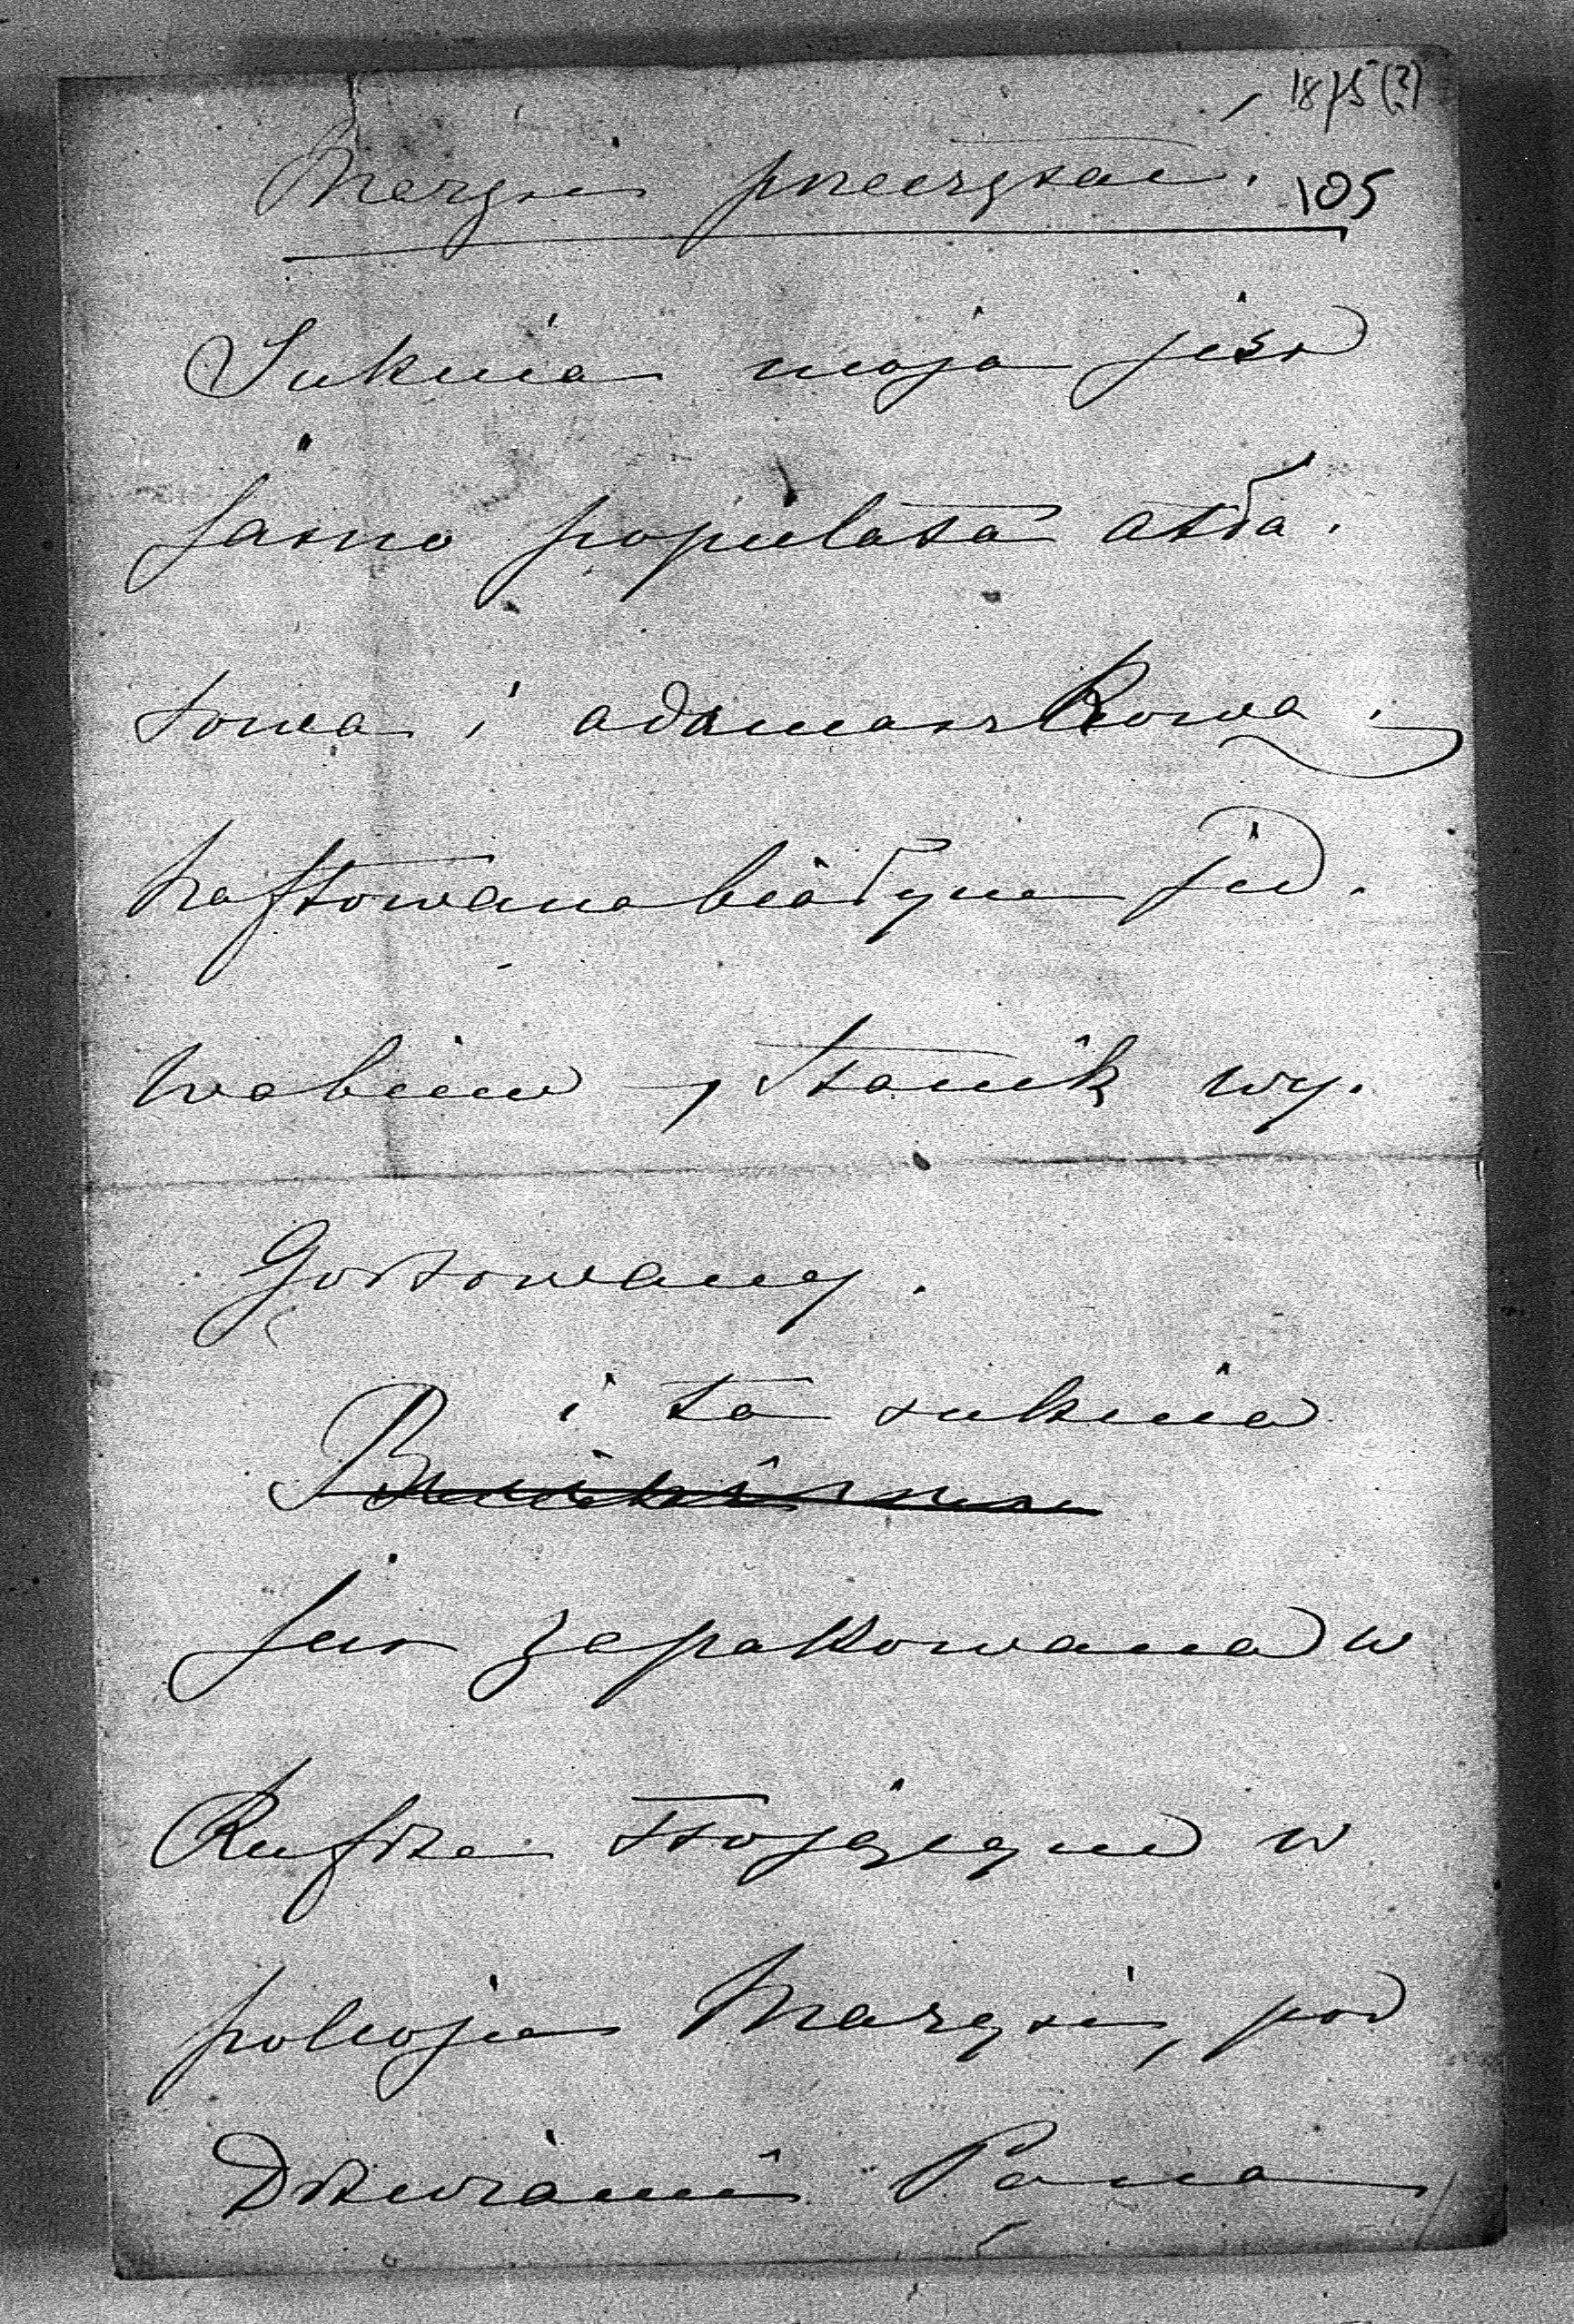 1875(?)
Marysi przeczytać.
105
Suknia moja jest
jasno popielata atła.
sowa i adamaszkowa,
haftowana białym jed.
wabiem, stanik wy.
Gorsowany.
i ta suknia
jest zapakowana w
Kufrze stojącym w
pokoju Marysi, pod
Drzwiami Pana